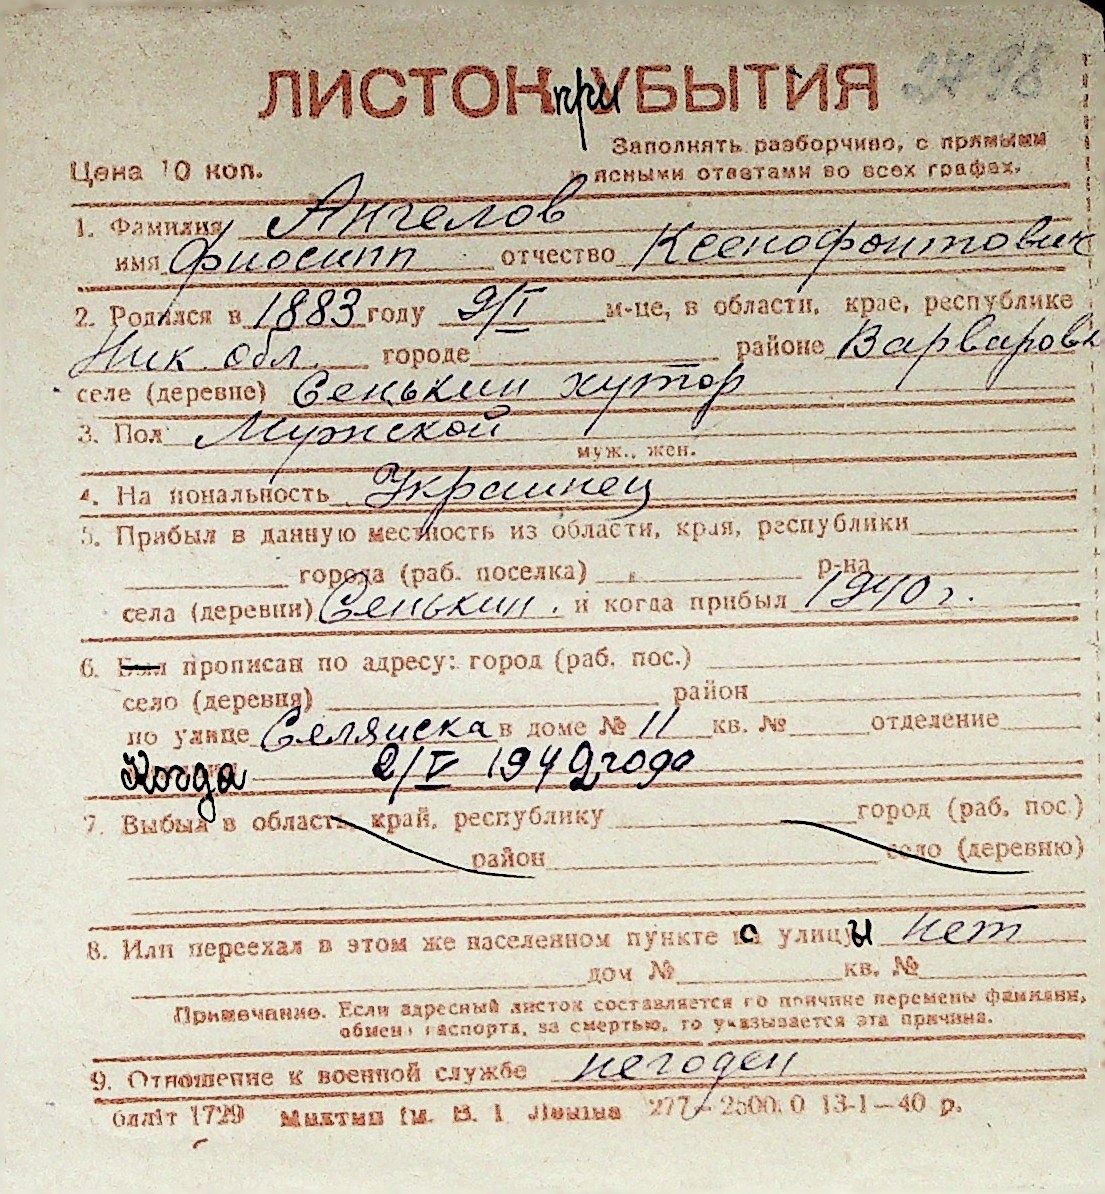 ЛИСТОК приУБЫТИЯ 2798
Заполнять разборчиво, с прямыми
Цена 10 коп. и ясными ответами во всех графах.
1. Фамилия Ангелов
имя Фиосипп отчество Ксенофонтович
2. Родился в 1883 году 9/I м-це, в области, крае, республике
Ник. обл. городе районе Варваровк
селе (деревне) Сенькин хутор
3. Пол Мужской
муж., жен.
4. На иональность Украинец
5. Прибыл в данную местность из области, края, республики
города (раб. поселка) р-на
села (деревни) Сенькин. и когда прибыл 1940 г.
6. Был прописан по адресу: город (раб. пос.)
село (деревня) район
по улице Селянска в доме № 11 кв. № отделение
Когда 2/V 1942 года
7. Выбыл в область, край, республику город (раб. пос.)
район село (деревню)
8. Или переехал в этом же населенном пункте с улицы нет
дом № кв. №
Примечание. Если адресный листок составляется по причине перемены фамилии,
обмена паспорта, за смертью, то указывается эта причина.
9. Отношение к военной службе негоден
блліт 1729 Миктип ім. В. І. Леніна 277—2500.0 13-1—40 р.